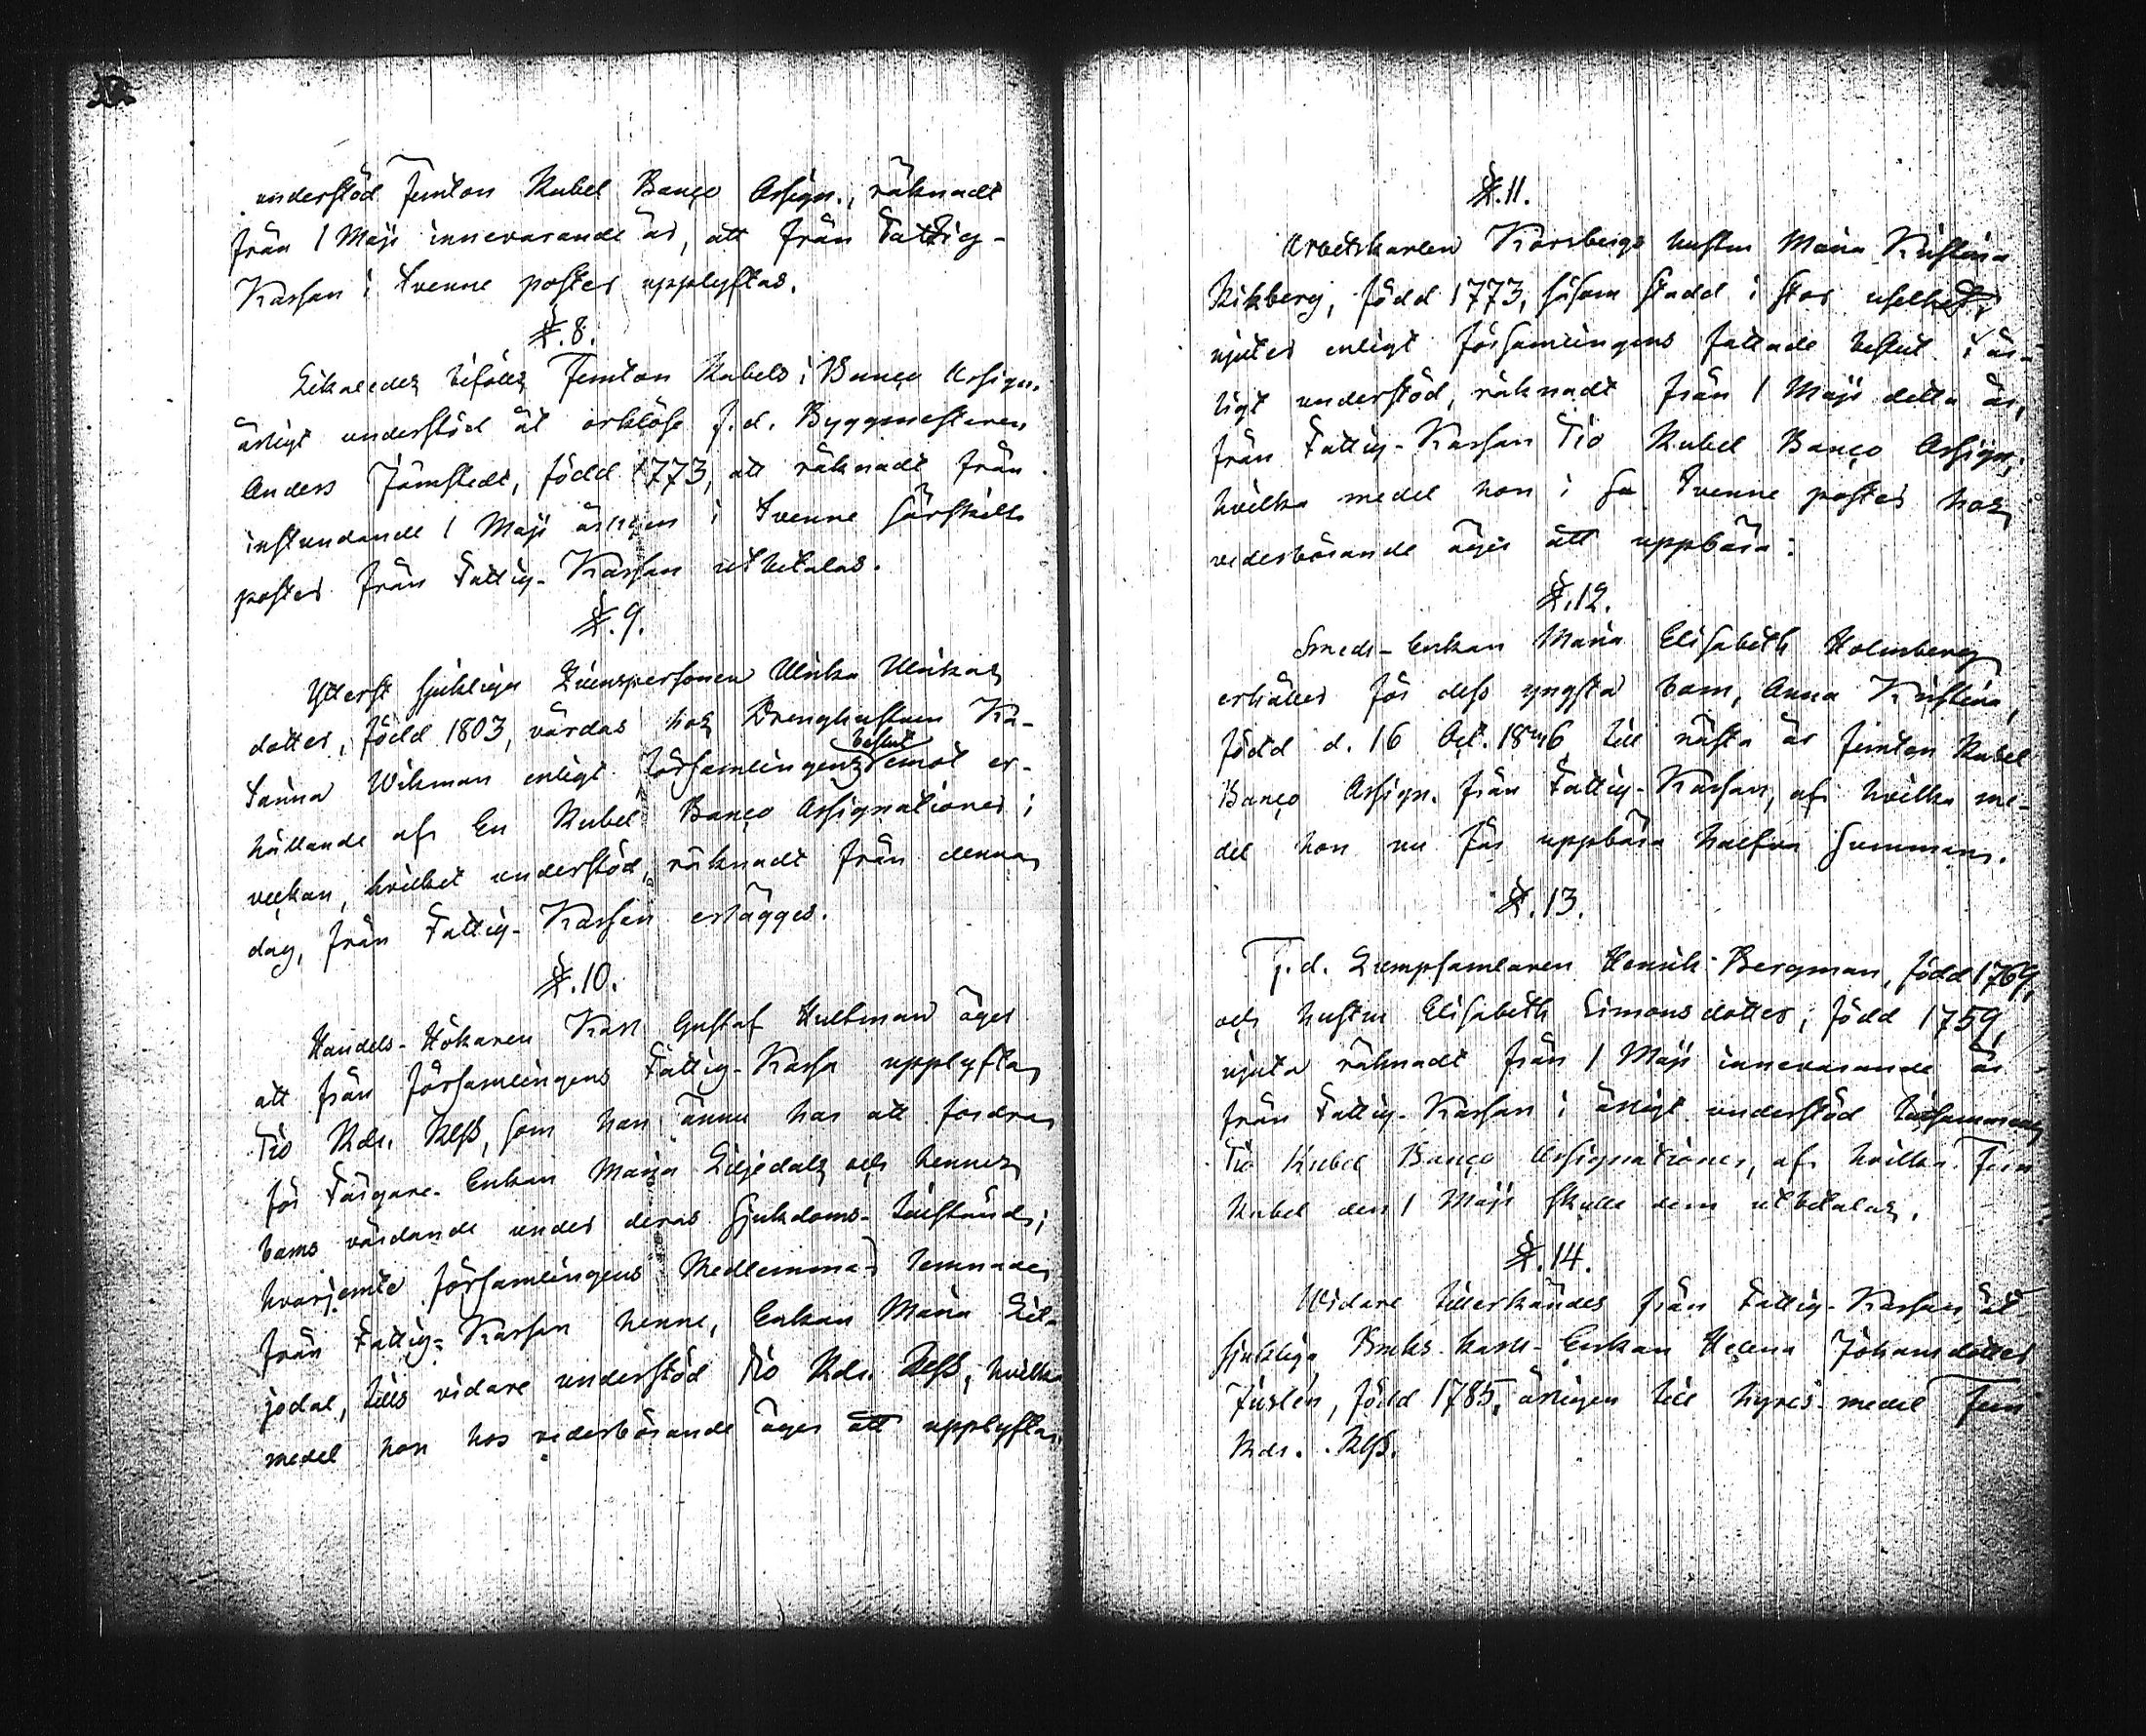 understöd Femton Rubel Banco Assign., räknadt
från 1 Maji innevarande år, att från Fattig-
Kassan i tvenne poster upplyftas.
§. 8.
Likaledes bifölls Femton Rubels i Banco Assign.
årligt understöd åt orklöse f. d. Byggmestaren
Anders Jernstedt, född 1773, att räknadt från
instundande 1 Maji årligen i tvenne särskilta
poster från Fattig-Kassan utbetalas.
§. 9.
Ytterst sjukliga Qvinspersonen Ulrika Ulrikas
dotter, född 1803, vårdas hos Drenghustrun Ka-
tarina Wikman enligt Församlingens beslut emot er-
hållande af En Rubel Banco Assignationer i
veckan, hvilket understöd, räknadt från denna
dag, från Fattig-Kassan erlägges.
§. 10.
Handels-Hökaren Karl Gustaf Hultman äger
att från Församlingens Fattig-Kassa upplyfta
Tio Rdr. Rgs, som han ännu har att fordra
för Färgare-Enkan Maria Liljedals och hennes
barns vårdande under deras sjukdoms-tillstånd;
hvarjemte Församlingens Medlemmar lemnade
från Fattig-Kassan henne, Enkan Maria Lil-
jedal, tills vidare understöd Tio Rdr. Rgs, hvilka
medel hon hos vederbörande äger att upplyfta.
§. 11.
Arbetskarlen Korsbergs hustru Maria Kristina
Rikberg, född 1773, såsom stadd i stor uselhet,
njuter enligt Församlingens fattade beslut i år-
ligt understöd, räknadt från 1 Maji detta år,
från Fattig-Kassan Tio Rubel Banco Assign;
hvilka medel hon i sa tvenne poster hos
vederbörande äger att uppbära:
§. 12.
Smeds-Enkan Maria Elisabeth Holmberg
erhåller för dess yngsta barn, Anna Kristina,
född d. 16 Oct. 1846 till nästa år femton Rubel
Banco Assign. från Fattig-Kassan, af hvilka me-
del hon nu får uppbära halfva summan.
§. 13.
F. d. Lumpsamlaren Henrik Bergman, född 1769,
och hustru Elisabeth Simonsdotter, född 1759,
njuta räknadt från 1 Maji innevarande år
från Fattig-Kassan i årligt understöd tillsammans
Tio Rubel Banco Assignationer, af hvilka Fem
Rubel den 1 Maji skulle dem utbetalas.
§. 14.
Widare tillerkändes från Fattig-Kassan, åt
sjukliga Bruks-karls-Enkan Helena Johansdotter
Juslén, född 1785, årligen till hyres-medel Fem
Rdr. Rgs.